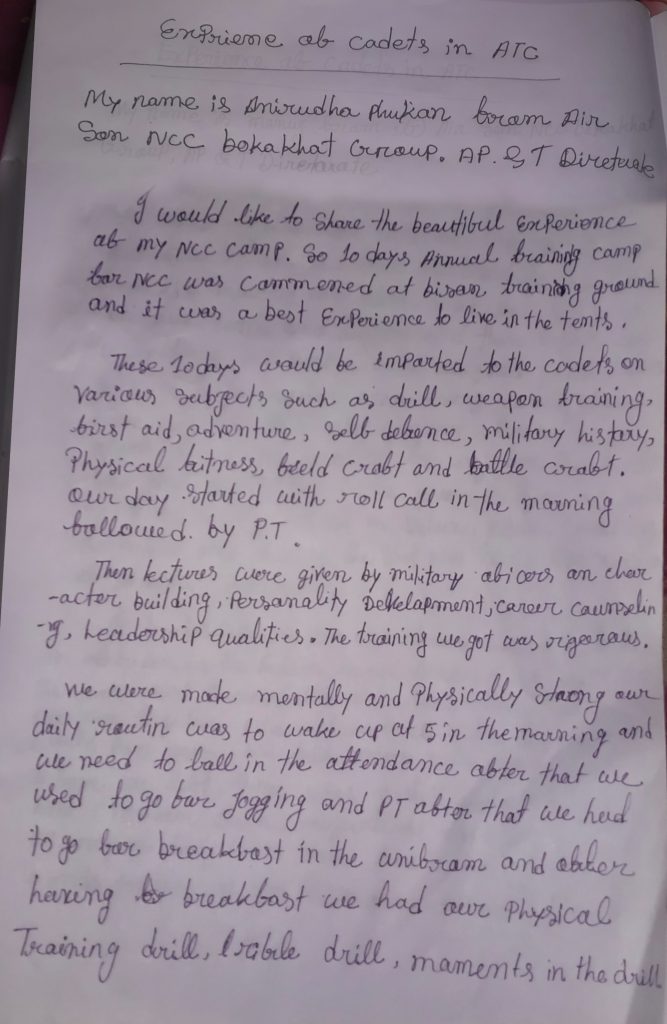 Exprieme of cadets in ATC
My name is Anirudha Phukan from Air
Son NCC bokakhat Group. AP. & T Diretuate
I would like to Share the beautiful Experience
of my NCC camp. So 10 days Annual training camp
for NCC was commened at bisan training ground
and it was a best Experience to live in the tents.
These 10days would be imparted to the cadets on
various subjects such as drill, weapon training,
first aid, adventure, self defence, military history,
Physical fitness, field craft and battle craft.
our day started with roll call in the morning
followed by P.T.
Then lectures were given by military oficers on char
-acter building, Personality Devkelopment, career counselin
-g, Leadership qualities. The training we got was rigorous.
We were made mentally and Physically Strong our
daily routin was to wake up at 5 in the morning and
we need to fall in the attendance after that we
used to go for Jogging and PT after that we had
to go for breakfast in the uniform and after
having breakfast we had our Physical
Training drill, drill, moments in the drill